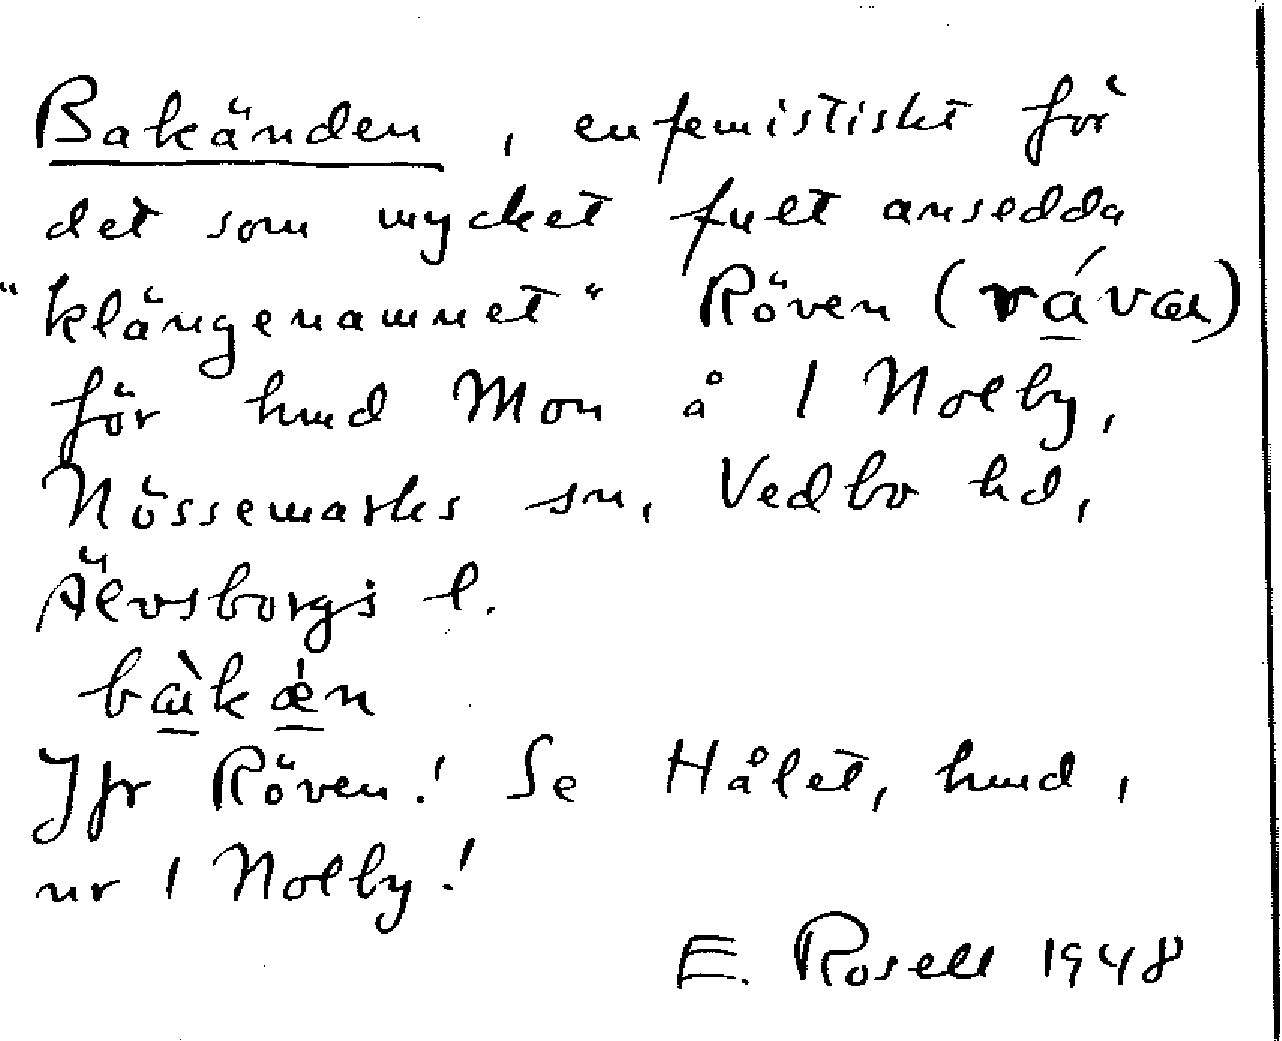 Bakänden, eufemistiskt för
det som mycket fult ansedda
"klängenamnet" Röven (rávaɹ)
för hmd Mon å 1 Nolby,
Nössemarks sn, Vedbo hd,
Älvsborgs l.
bàkǽn
Jfr Röven! Se Hålet, hmd,
nr 1 Nolby!
E. Rosell 1948